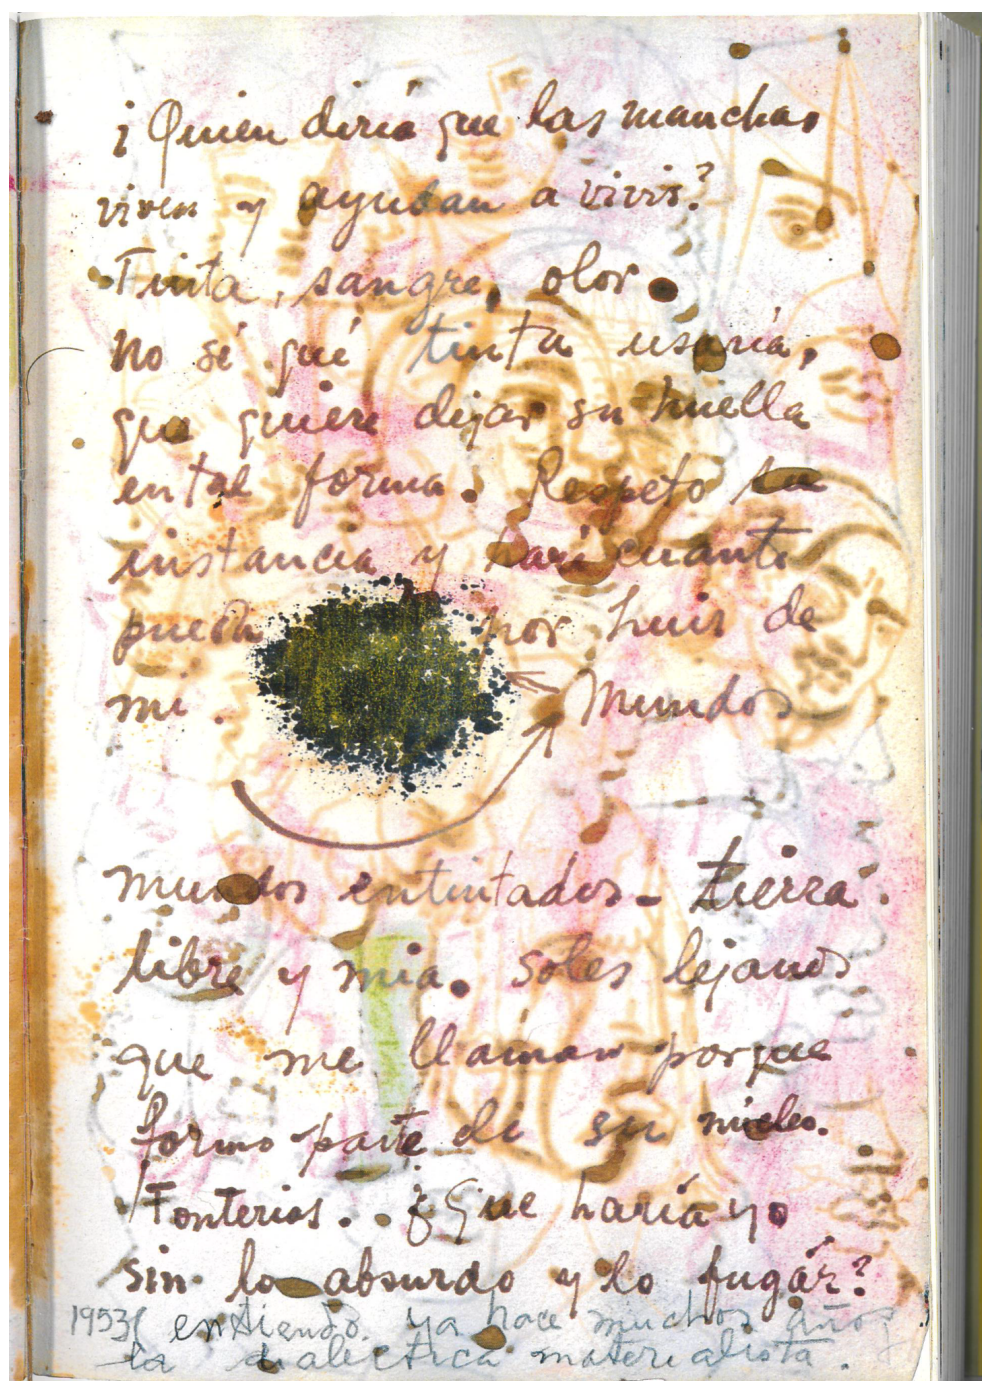 ¡Quien diria que las manchas
viven y ayudan a vivir?
Tinta, sangre, olor.
No sé qué tinta usaría,
que quiere dejar su huella
en tal forma. Respeto su
instancia y haré cuanto
pueda por huir de
mi. Mundos
mundos entintados - tierra
libre y mia. soles lejanos
que me llaman porque
formo parte de su núcleo.
Tonterias. ¿Que haría yo
sin lo absurdo y lo fugáz?
1953 entiendo ya hace muchos años
la dialectica materialista.